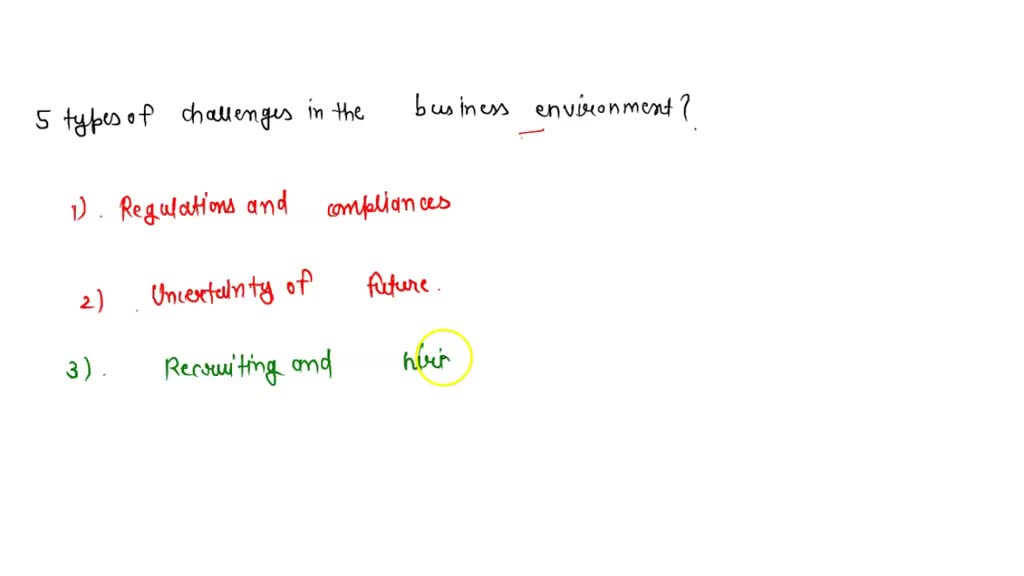 5 types of challenges in the business environment?
1). Regulations and compliances
2) . Uncertainty of future.
3). Recruiting and hirin